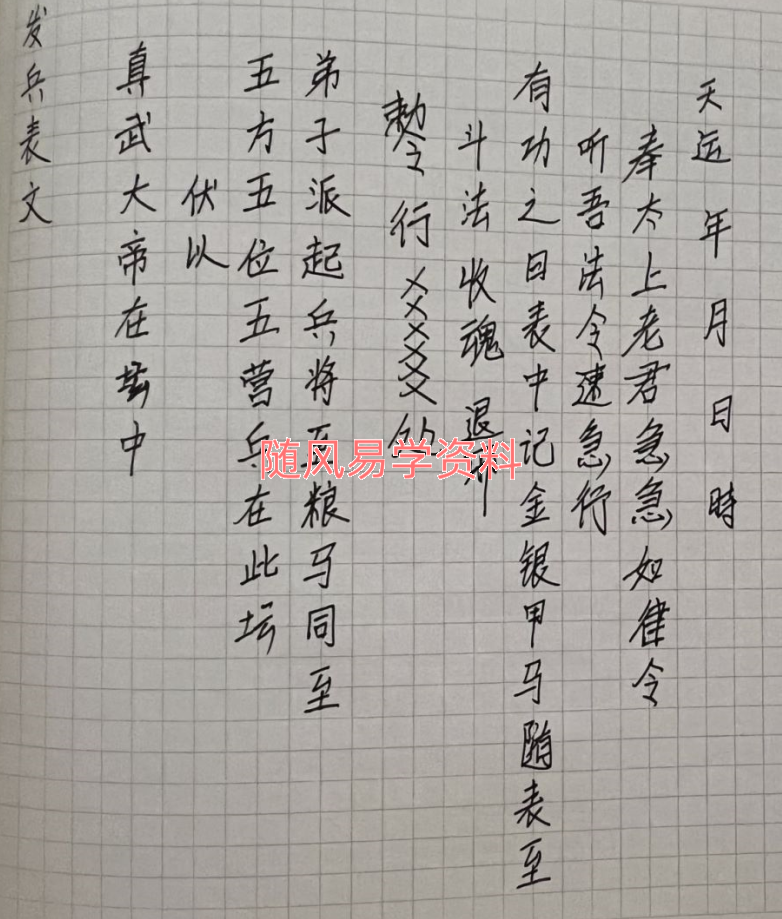 发兵表文
真武大帝在坛中
伏以
五方五位五营兵在此坛
弟子派起兵将粮马同至
勅令行XXXXX
斗法收魂 退
有功之日表中记金银甲马随表至
听吾法令速急行
奉太上老君急急如律令
天运 年 月 日 時
随风易学资料